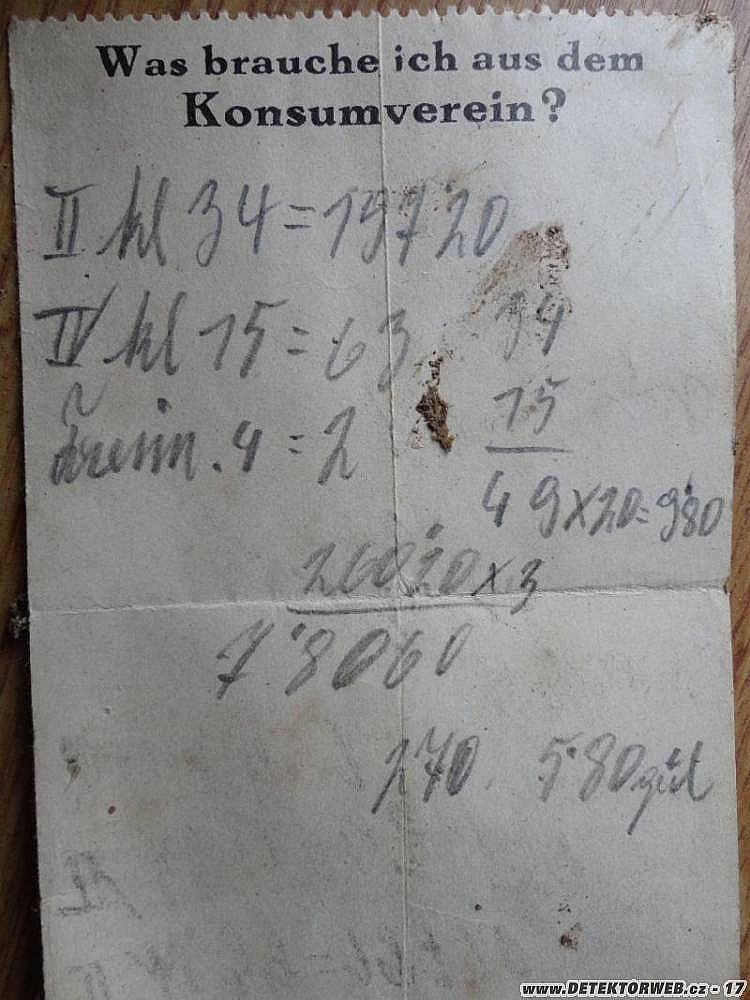 Was brauche ich aus dem
Konsumverein?
II kl 34 = 19720
IV kl 15 = 63
34
15
4 = 2
49 x 20 = 980
26020 x 3
78060
270 580
www.DETEKTORWEB.cz - 17